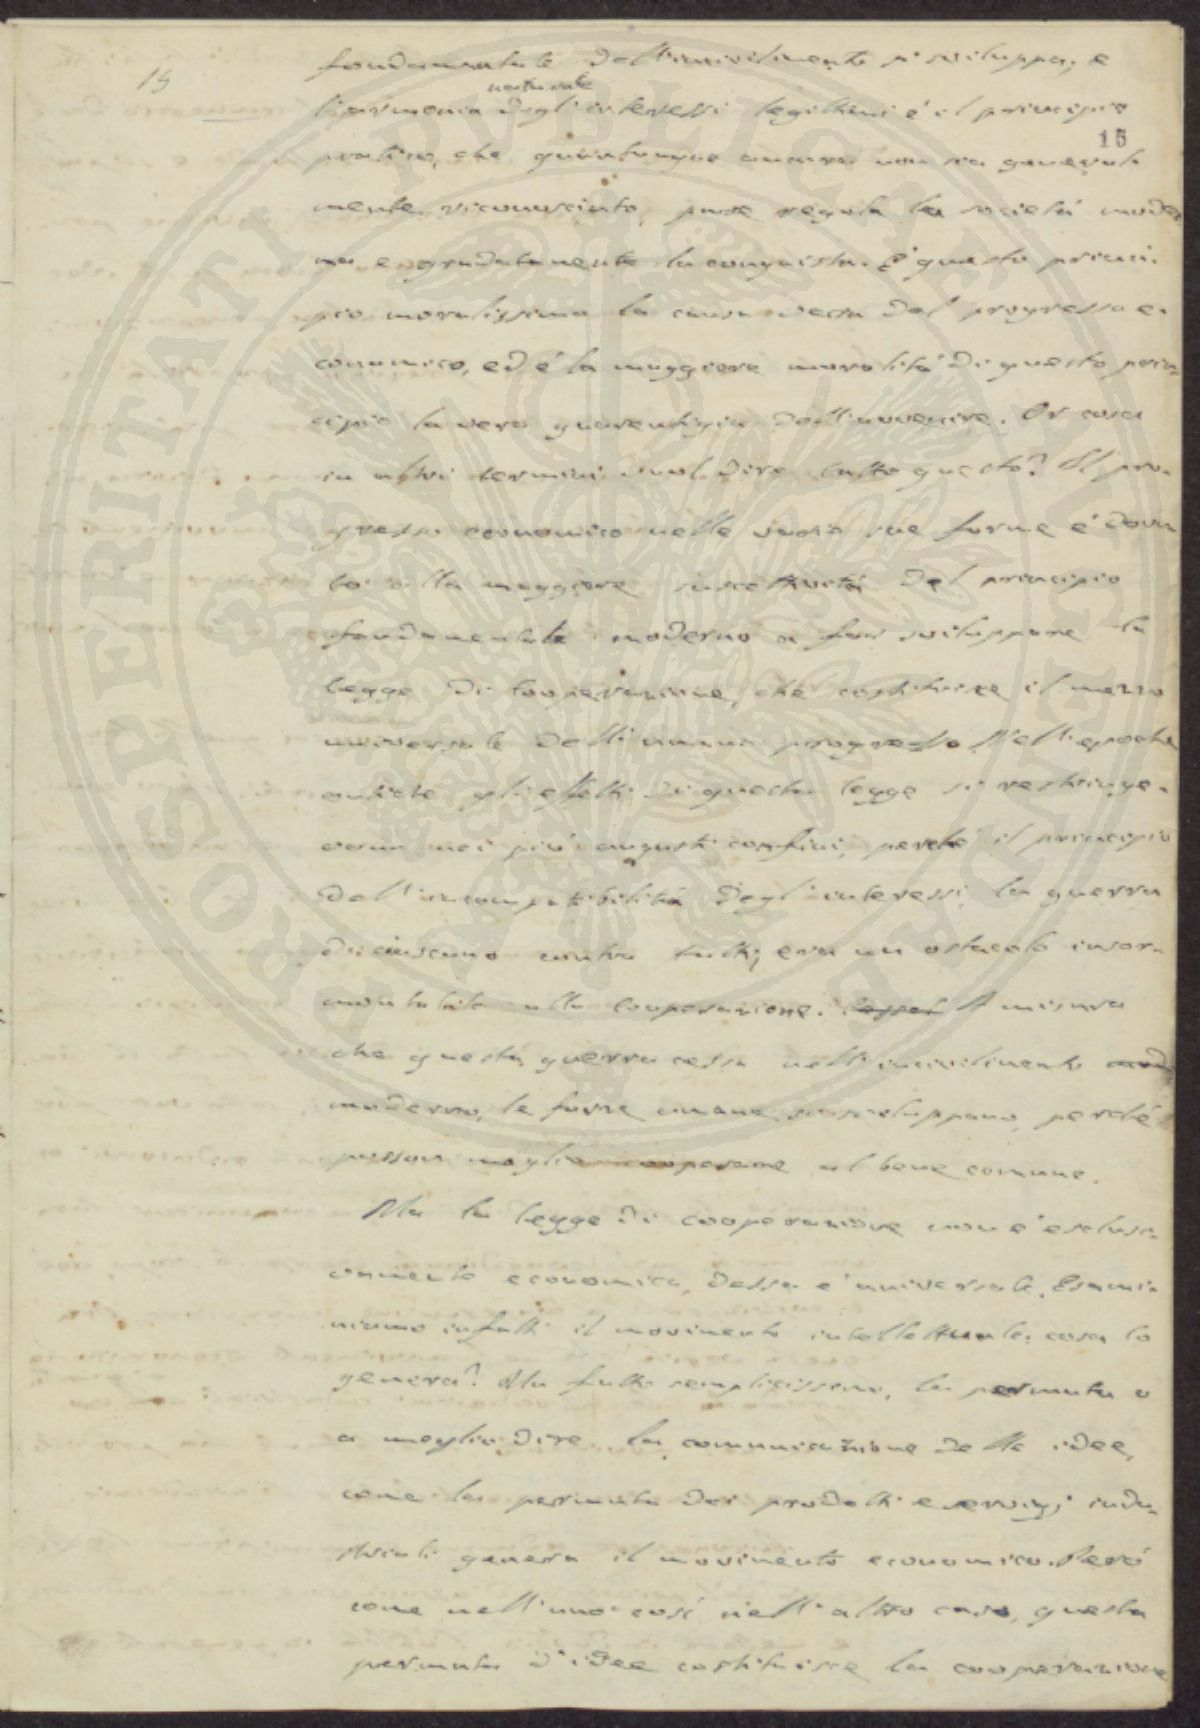 15
fondamentale dell'incivilimento si sviluppa; e
naturale
l'armonia degli interessi legittimi è il principio
15
pratico, che quantunque ancora non sia general-
mente riconosciuto, pure regola la società moder
na e gradatamente la conquista. È questo princi-
pio moralissimo la causa vera del progresso e-
conomico, ed è la maggiore moralità di questo prin-
cipio la vera guarentigia dell'avvenire. Or cosa
in altri termini vuol dire tutto questo? Il pro-
gresso economico nelle varie sue forme è dovu
to alla maggiore suscettività del principio
fondamentale moderno a far sviluppare la
legge di cooperazione, che costituisce il mezzo
universale dell'umano progresso. Nell'epoche
antiche gli effetti di questa legge si restringe-
vano nei più angusti confini, perché il principio
dell'incompatibilità degli interessi, la guerra
di ciascuno contro tutti, era un ostacolo insor-
montabile alla cooperazione. A misura
che questa guerra cessa nell'incivilimento
moderno, le forze umane si sviluppano, perché
possono meglio cooperare al bene comune.
Ma la legge di cooperazione non è esclusi-
vamente economica, dessa è universale. Esami-
niamo infatti il movimento intellettuale: cosa lo
genera? Un fatto semplicissimo, la permuta o
a meglio dire la comunicazione delle idee,
come la permuta dei prodotti e servizj indu-
striali genera il movimento economico. Però
come nell'uno così nell'altro caso, questa
permuta d'idee costituisce la cooperazione
PROSPERITATI PUBLICAE AUGENDAE